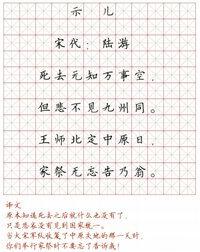 示儿
宋代：陆游
死去元知万事空，
但悲不见九州同。
王师北定中原日，
家祭无忘告乃翁。
译文
原本知道死去之后就什么也没有了，
只是悲哀没有见到国家统一。
当大宋军队收复了中原失地的那一天时，
你们举行家祭时不要忘了告诉我！